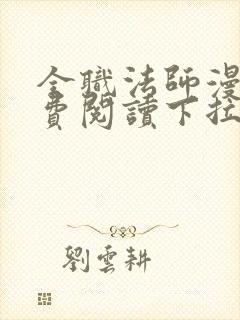 全職法師漫
費閱讀下拉
劉雲耕